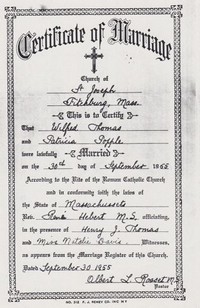 Certificate of Marriage
Church of
St Joseph
Fitchburg, Mass.
This is to Certify
That Wilfred Thomas
and Patricia Popple
were lawfully Married
on the 30th day of September 1955
According to the Rite of the Roman Catholic Church
and in conformity with the laws of the
State of Massachusetts
Rev. Hebert M.S. officiating,
in the presence of Henry J. Thomas
and Miss Davis, Witnesses,
as appears from the Marriage Register of this Church.
Dated September 30 1955
Albert L.
Pastor